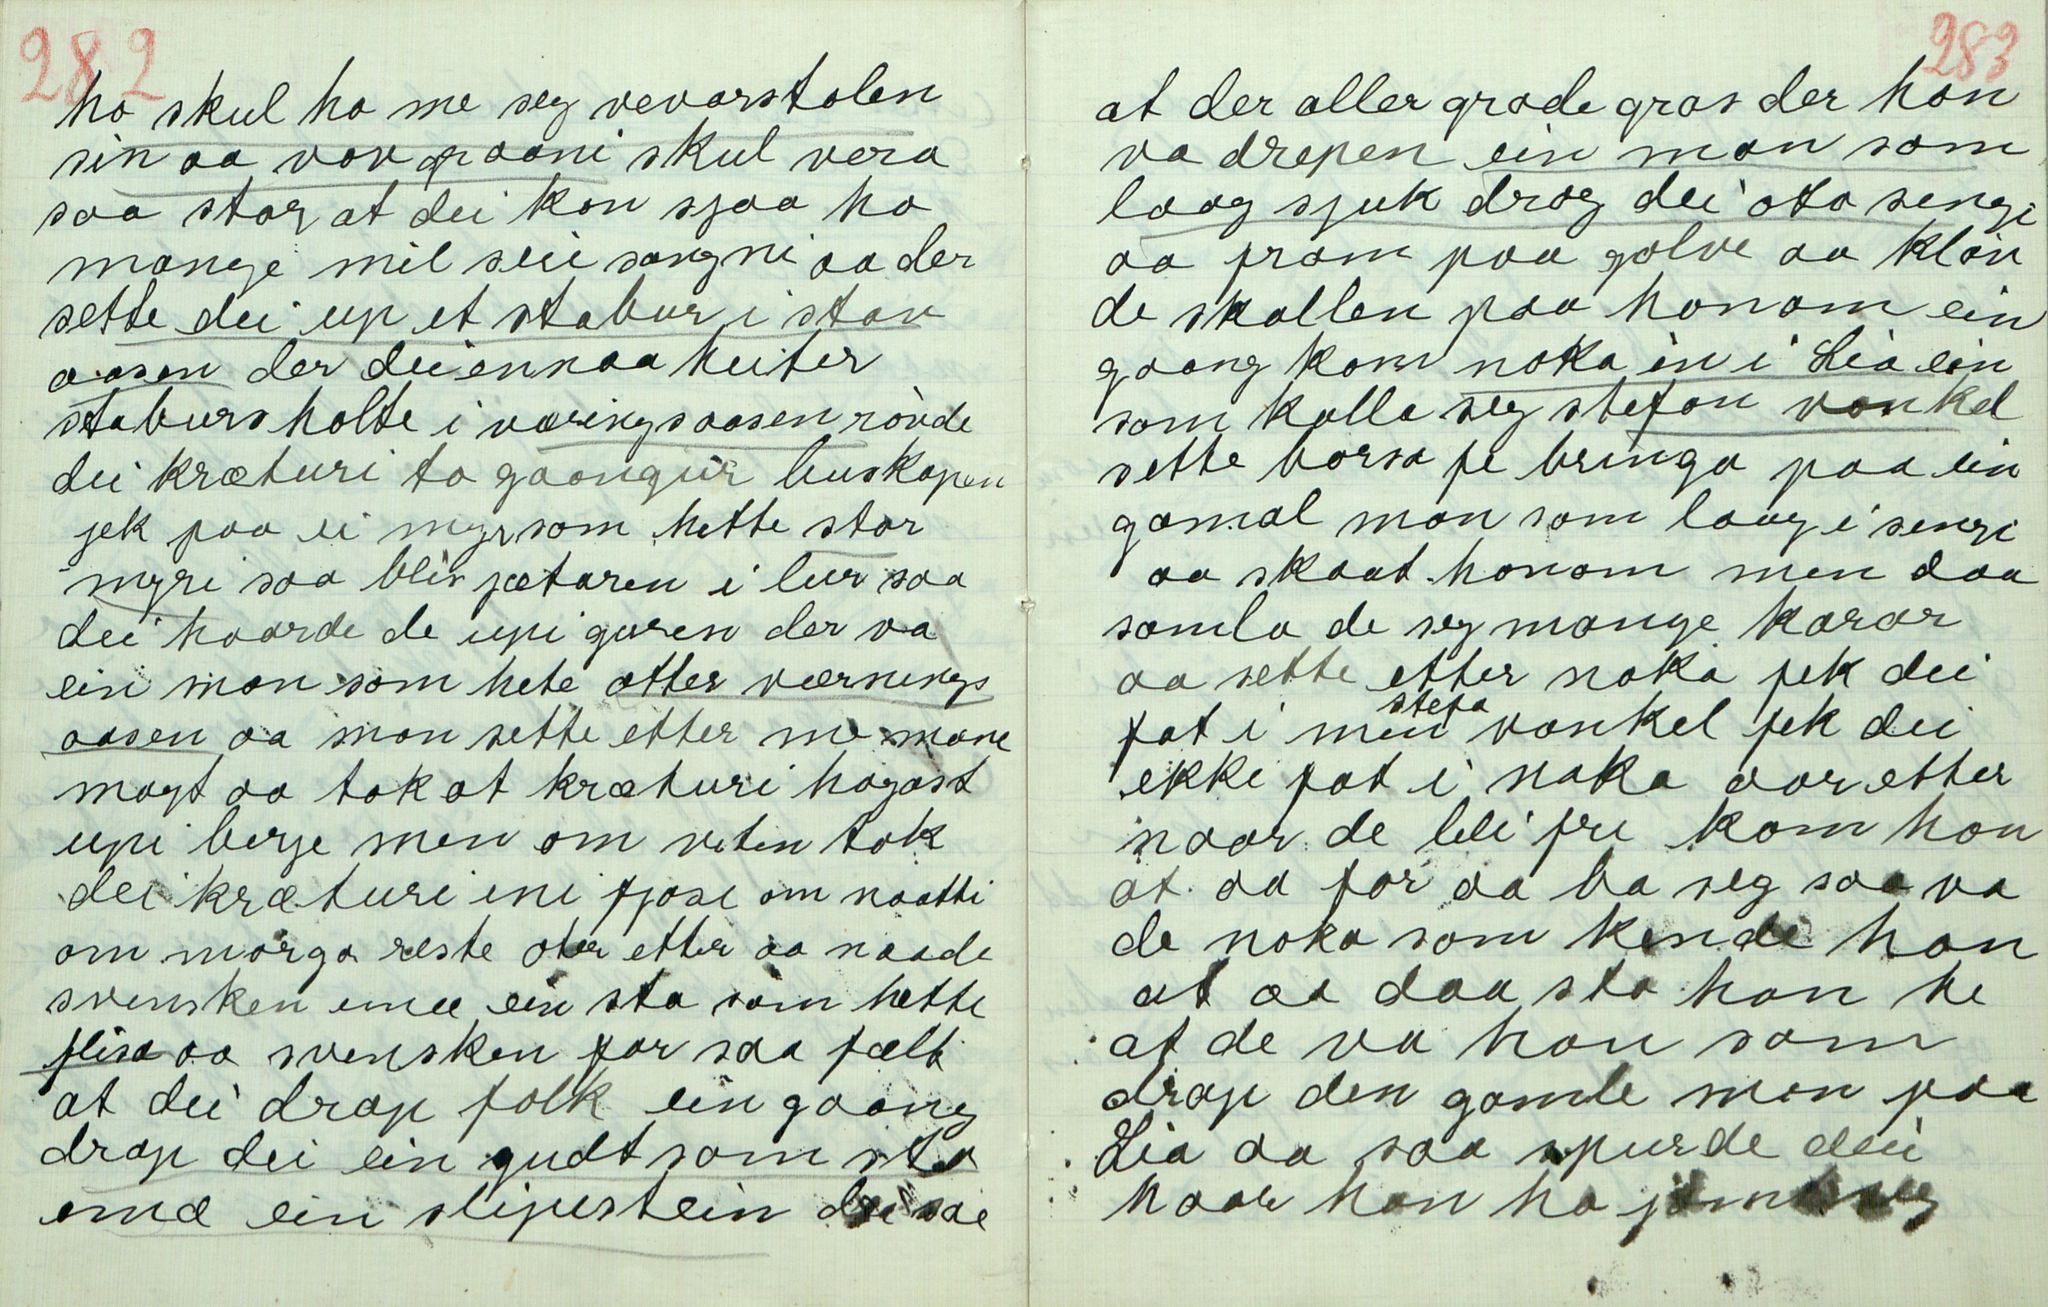 282
ho skul ha me seg vevarstolen
sin aa vav graani skul vera
saa stor at dei kan sjaa ho
mange mil seii sangni aa der
sette dei up et stabur i stav
aasen der dei ennaa heiter
stabursholte i væringsaasen rövde
dei kræturi ta gaangür buskapen
jek paa ei myr som hette stor
myri saa blis jætaren i lur saa
dei haarde de upi garen der va
ein man som hete otter værnings
aasen aa man sette etter me mane
magt aa tok at kræturi hagast
upi berge men om veten tok
dei kræturi ini fjøse om naatti
om morga reste oter etter aa naade
svensken emce ein sta som hette
flisa aa svensken for saa fælt
at dei drap folk ein gaang
drap dei ein gudt som sto
emd ein slipestein dei sae
283
at der aller grode gras der han
va drepen ein man som
laag sjuk drog dei ota sengi
aa fram paa golve aa kløv
de skallen paa honom ein
gaang kom noka in i Lia ein
som kalla seg stefan vankel
sette børsa fe bringa paa ein
gamal man som laag i sengi
aa skaat honom men daa
samla de seg mange karar
aa sette etter noka fek dei
stefa
fat i men vankel fek dei
ekki fat i noka aar etter
naar de blei fre kom han
at aa for aa ba seg saa va
de noka som kende han
at aa daa sta han he
at de va han som
drap den gamle man paa
Lia aa saa spurde dei
haar han ha